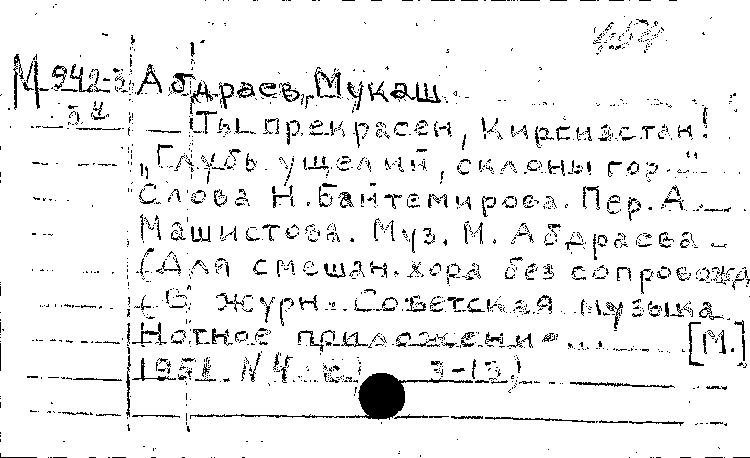 М 942-3 Абдраев, Мукаш
Ты прекрасен, Киргизстан!
„Глубь ущелий, склоны гор..."
Слова Н. Байтемирова. Пер. А.
Машистова. Муз. М. Абдраева -
(Для смешан. хора без сопровожд
(В журн. Советская музыка
Нотное приложение... [М.]
1951. N 4. 3-13)